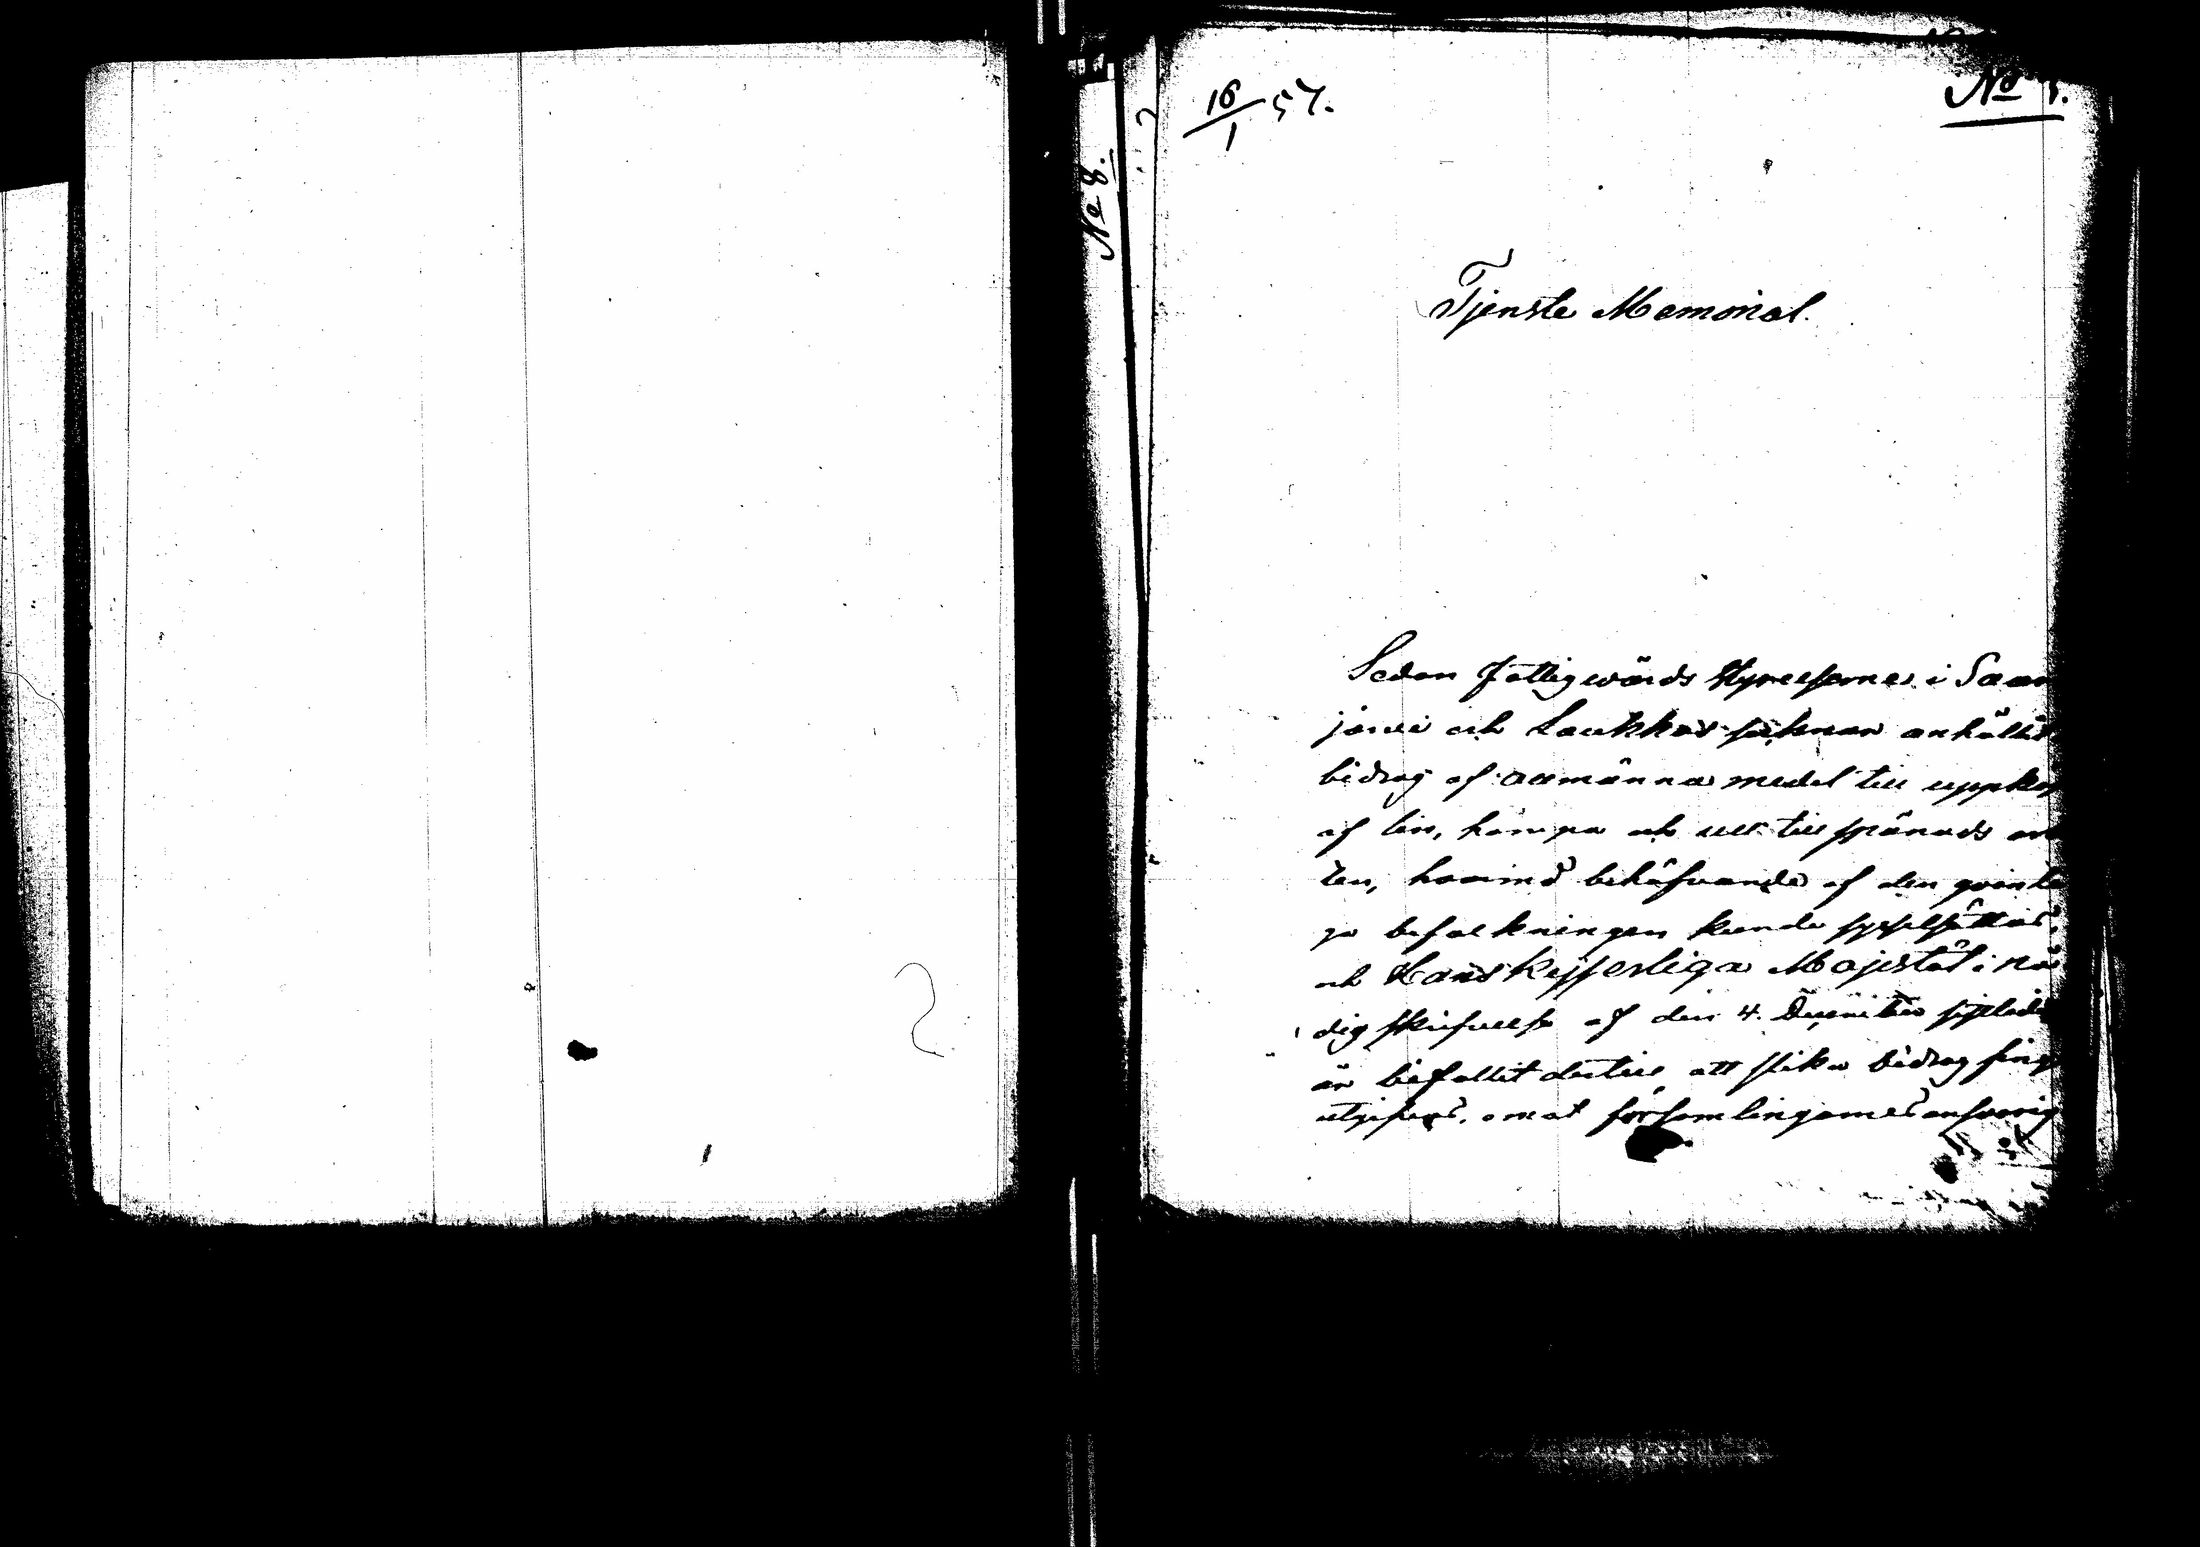 16/1 57.
No
No 8.
Tjenste Memorial.
Sedan Fattigwårds Styrelserne i Saari
järvi och Laukkas socknar anhållit
bidrag af allmänna medel till uppköp
af lin, hampa och ull till spånads
ten, hvarmed behöfvande af den qvinli
ga befolkningen kunde sysselsättas,
och Hans Kejserliga Majestät i nå
dig skrifvelse af den 4. December sistledit
år befallit dertill, att slika bidrag finge
utgifvas, emot församlingarnes ansvarig